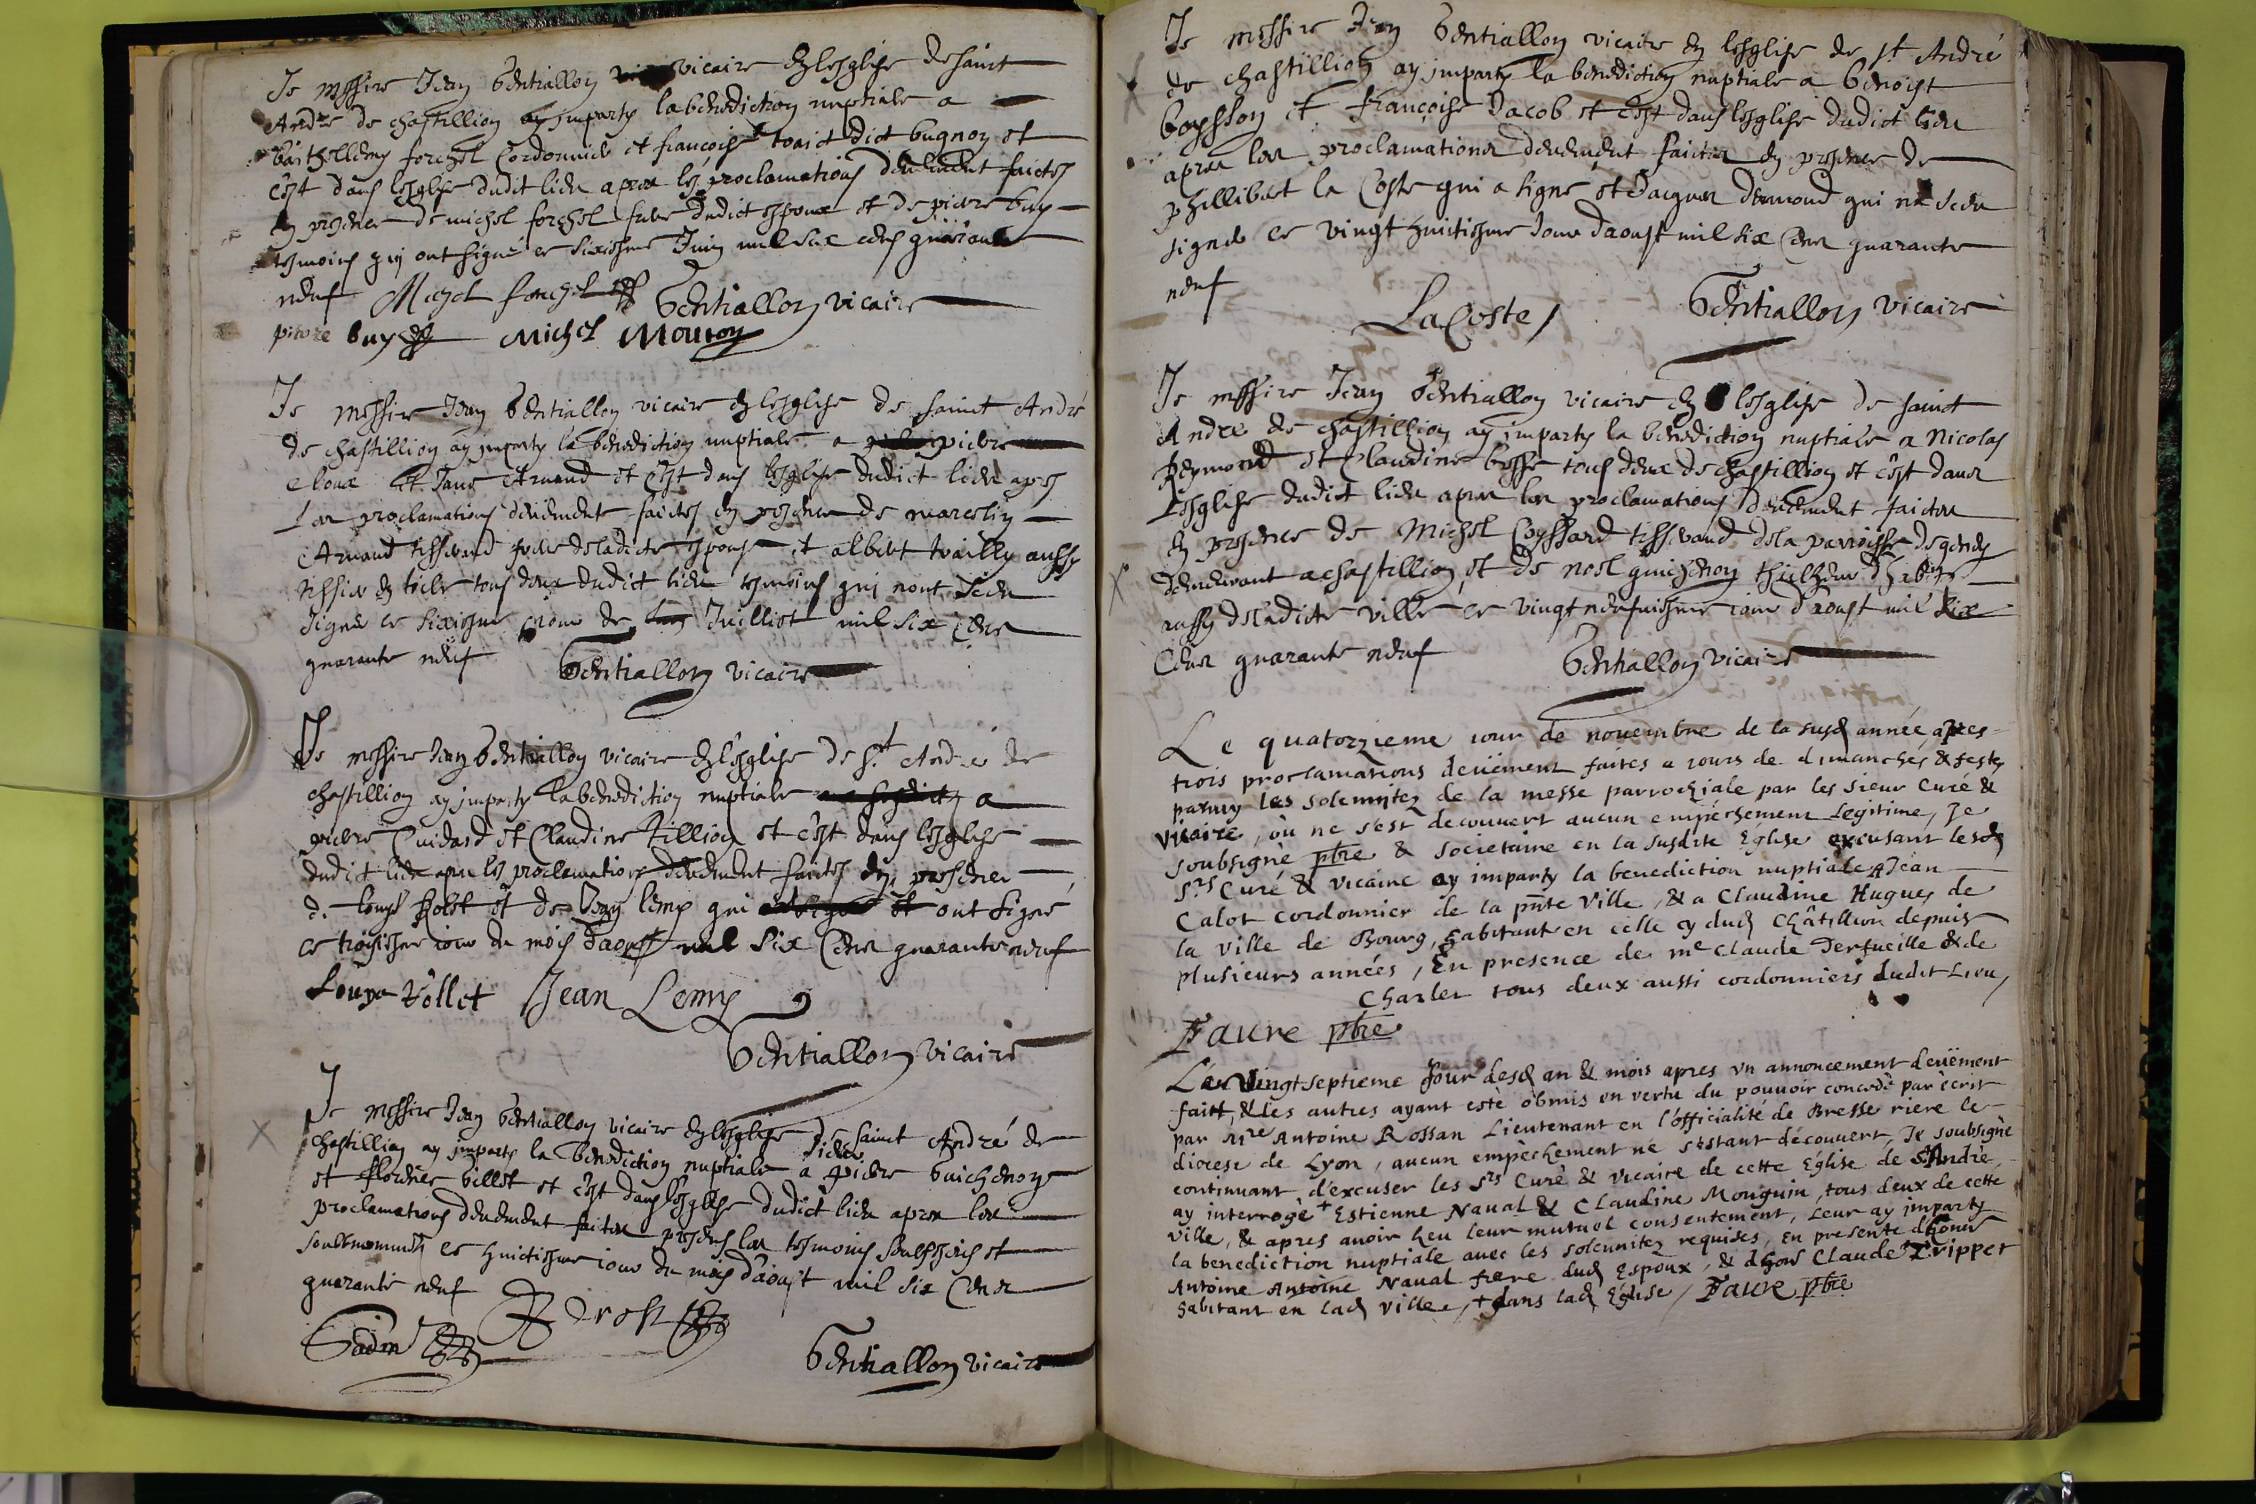 Je messire Jean Gentiallon vicaire en lesglise de sainct
André de chastillion ay imparty la benediction nuptiale a
barthellemy forchel Cordonnier et francoise toact dict bugnon et
c'est dans lesglise dudit lieu apres les proclamations deuement faictes
en presence de michel forchel frere dudict espoux et de pierre buy
tesmoins qui ont signé ce sixiesme Juin mil six cens quarante
neuf Michel forchel Gentiallon vicaire
pierre buy Michel Mouton
Je messire Jean Gentiallon vicaire en lesglise de sainct André
de chastillion ay imparty la benediction nuptiale a pierre
eloux et Jane Arnaud et c'est dans lesglise dudict lieu apres
les proclamations deuement faictes en presence de marcelin
Arnaud tisserand frere deladicte espouse et albert trailly aussy
tissier en toile tous deux dudict lieu tesmoins qui nont sceu
signer ce sixiesme jour de Juilliet mil six cens
quarante neuf Gentiallon vicaire
Je messire Jean Gentiallon vicaire en l'esglise de St André de
chastillion ay imparty la benediction nuptiale a
pierre Cuidard et Claudine tillion et c'est dans lesglise
dudict lieu apres les proclamations deuement faictes en presence
de Louys Volet et de Jean lemy qui et ont signé
ce troisiesme iour du mois daoust mil six Cens quarante neuf
Louys Vollet Jean Lemy
Gentiallon vicaire
Je messire Jean Gentiallon vicaire en lesglise de sainct André de
chastillion ay imparty la benediction nuptiale a sieur pierre Guichenon
et florence billet et c'est dans lesglise dudict lieu apres les
proclamations deuement faites presens les tesmoins soubsignés et
soubznommés ce huictiesme iour du mois d'aoust mil six Cens
quarante neuf
Gentiallon vicaire
Je messire Jean Gentiallon vicaire en lesglise de st André
de chastillion ay imparty la benediction nuptiale a benoist
boysson et françoise Jacob et c'est dans lesglise dudict lieu
apres les proclamations deuement faictes en presence de
phillibert la Coste qui a signé et Jacques demond qui na sceu
signer ce vingt huitiesme Jour daoust mil six Cens quarante
neuf
LaCoste Gentiallon vicaire
Je messire Jean Gentiallon vicaire en lesglise de sainct
André de chastillion ay imparty la benediction nuptiale a Nicolas
Reymond et Claudine bosse tous deux de chastillion et c'est dans
Lesglise dudict lieu apres les proclamations deuement faictes
en presence de Michel Coyssard tisserand dela parroisse
demeurant a chastillion et de noel guichenon
aussy deladicte ville ce vingt neufuiesme iour daoust mil six
Cens quarante neuf Gentiallon vicaire
Le quatorzieme iour de nouembre de la susd année apres
trois proclamations deüement faites a iours de dimanches & festes
parmy les solemnitez de la messe parrochiale par les sieur Curé &
Vicaire, ou ne s'est decouuert aucun empéchement Legitime, Je
soubsigné pbre & societaire en la susdite Église excusant lesd
Srs Curé & Vicaire ay imparty la benediction nuptiale A Jean
Calot cordonnier de la pnte Ville, & a Claudine Hugues de
la Ville de Bourg, habitante en celle cy dud Châtillion depuis
plusieurs années, En presence de me Claude Terfueille & de
Charles tous deux aussi cordonniers dudit Lieu,
Faure pbre
Le Vingtseptieme Jour desd an & mois apres vn annoncement deüement
faitt, & les autres ayant esté obmis en vertu du pouuoir concedé par ècrit
par Mre Antoine Rossan Lieutenant en l'officialité de Bresse riere le
diocese de Lyon, aucun empèchement ne s'estant découuert, Je soubsigné
continuant d'excuser les Srs Curé & Vicaire de cette Église de St André
ay interrogé + Estienne Naual & Claudine Monguin, tous deux de cette
Ville, & apres auoir heu leur mutuel consentement, Leur ay imparty
la benediction nuptiale auec les solennitez requises, en presente d'honre
Antoine Antoine Naual frere dud Espoux, & d'hon Claude Tripper
habitant en lad ville, + dans lad Église, Faure pbre